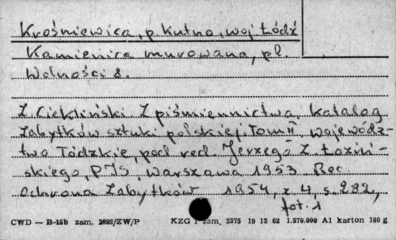 Krośniewice, p. Kutno, woj. Łódź
Kamienica murowana, pl.
Wolności 8.
Z. Ciekliński Z piśmiennictwa Katalog
zabytków sztuki polskiej. Tom II, wojewódz-
two Łódzkie, pod red. Jerzego Z. Łoziń-
skiego, PIS, Warszawa 1953. Rec.
Ochrona Zabytków 1954, z. 4, s. 282,
fot. 1
CWD — B-15b zam. 2692/ZW/P KZG 1 zam. 2375 19 12 62 1.570.000 A1 karton 180 g